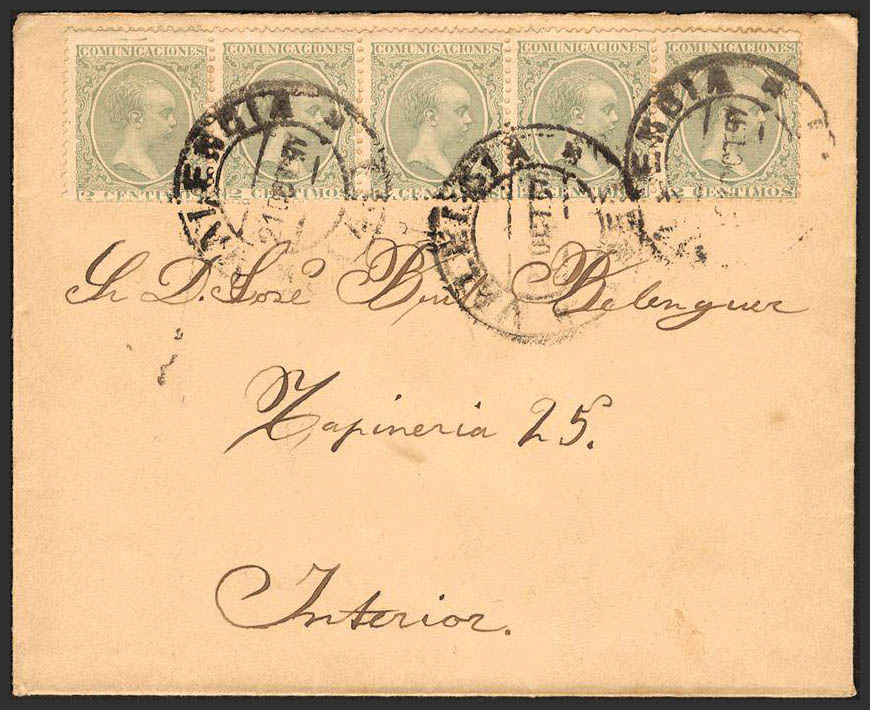 COMUNICACIONES COMUNICACIONES COMUNICACIONES COMUNICACIONES COMUNICACIONES
2 CENTIMOS 2 CENTIMOS CENTIMOS CENTIMOS CENTIMOS
VALENCIA VALENCIA VALENCIA
21 OCT OCT OCT
Sr D. José Belenguer
Tapineria 25.
Interior.